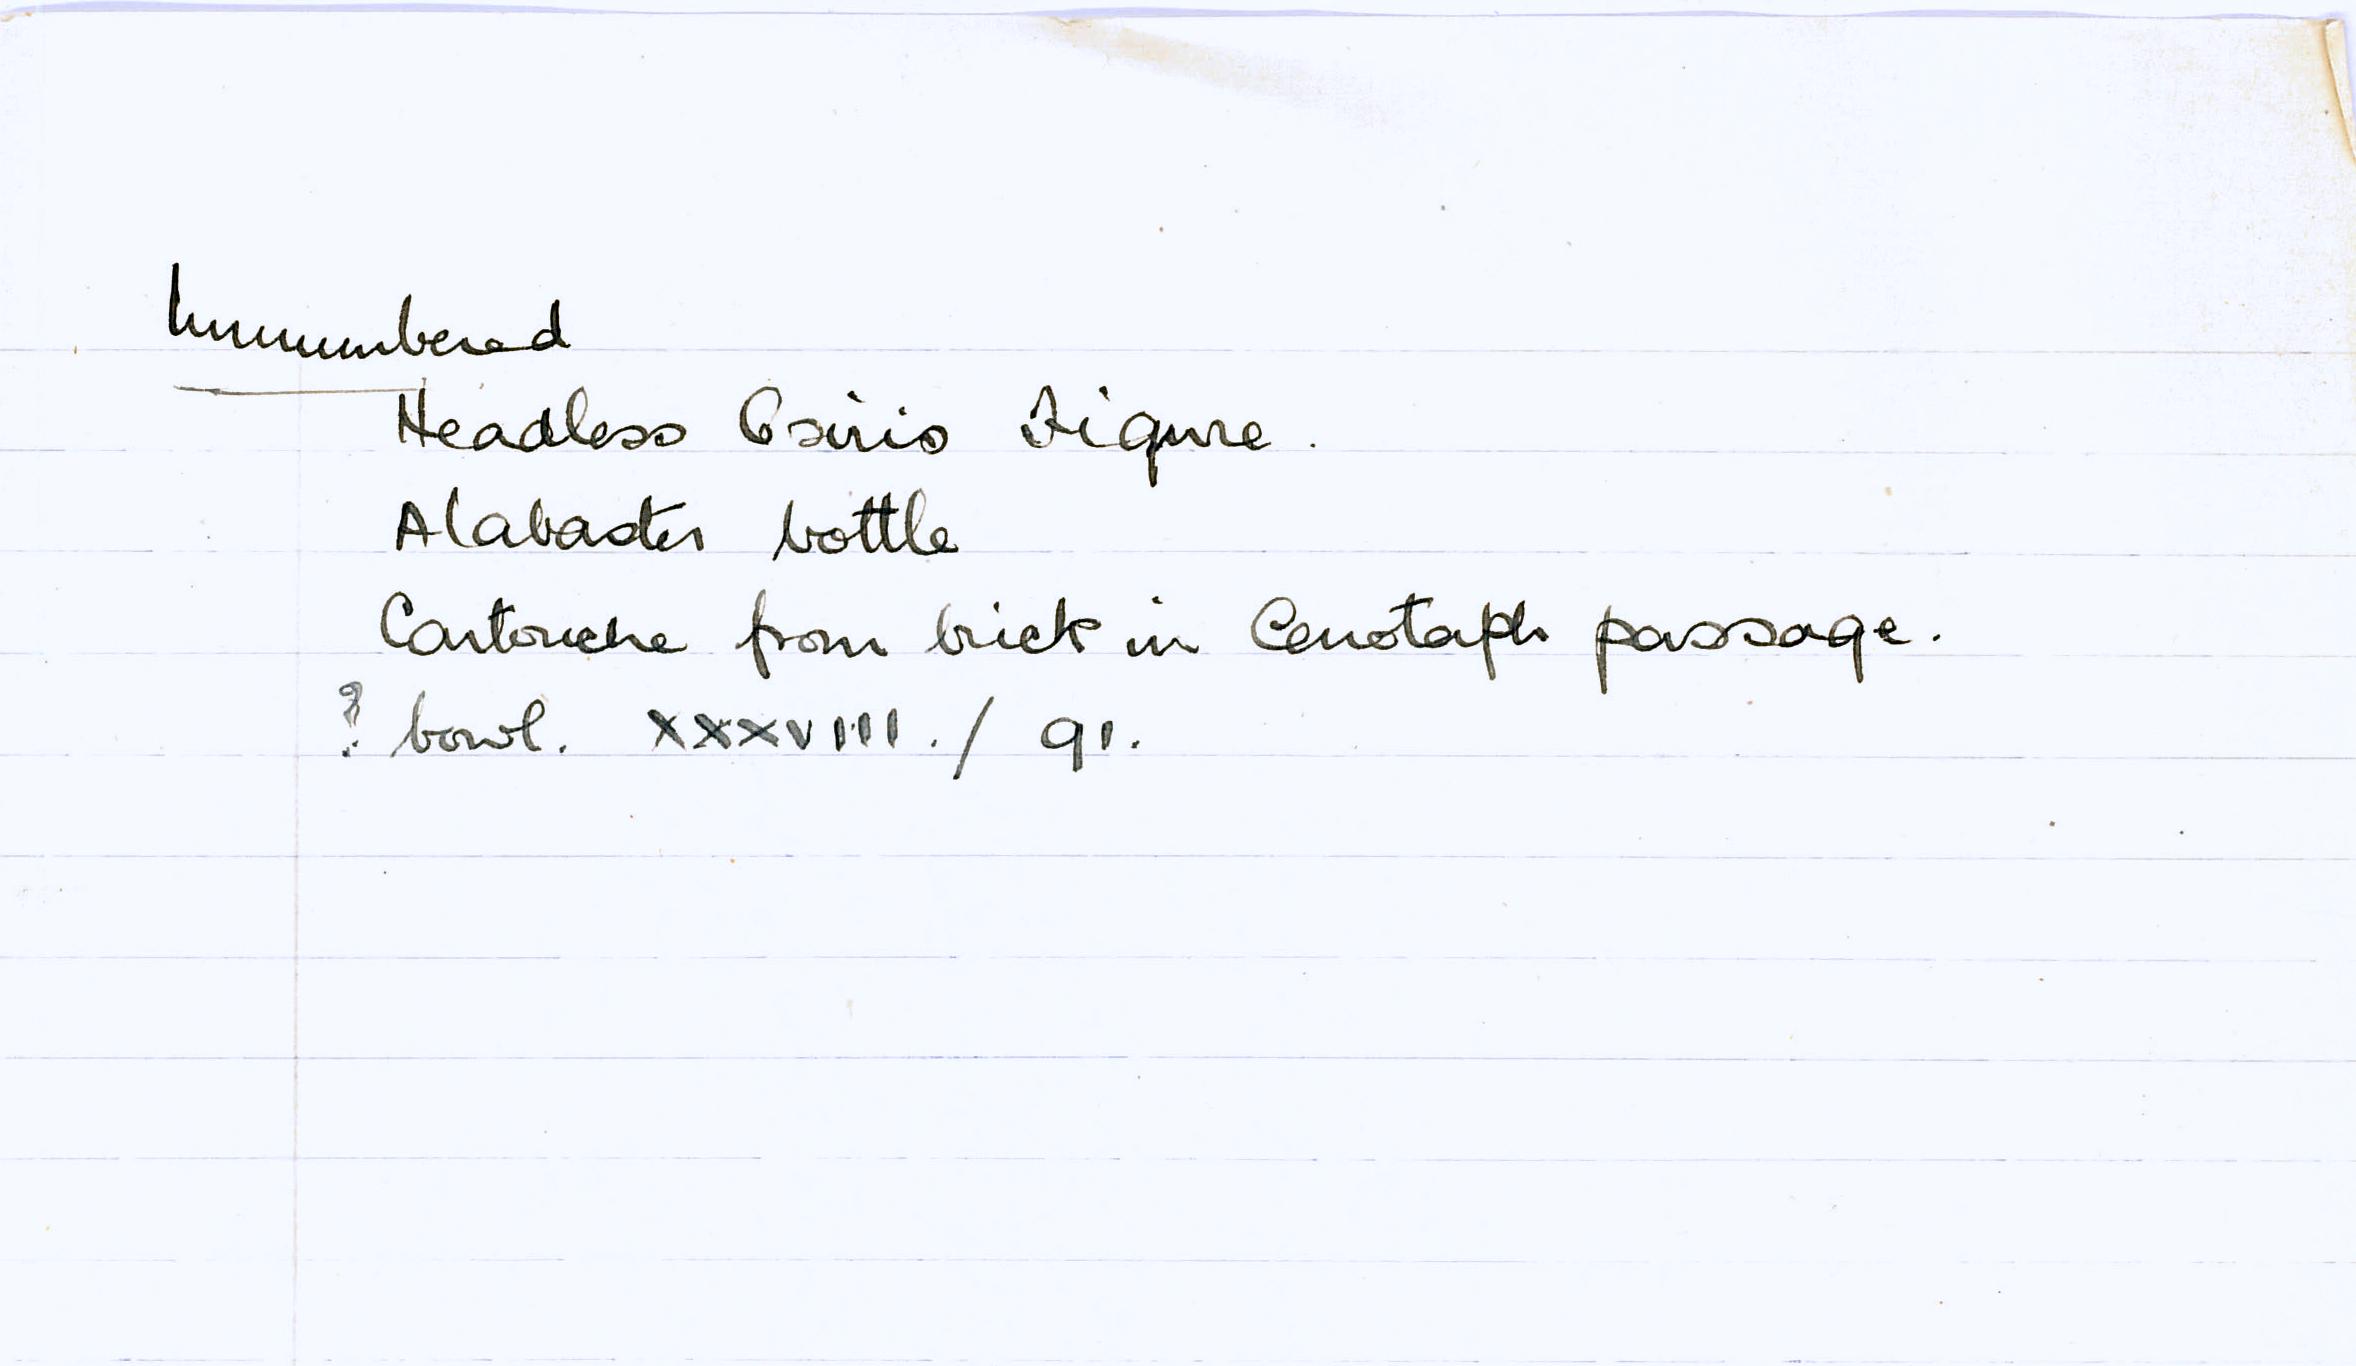 Unnumbered
Headless Osiris Figure.
Alabaster bottle
Cartouche from brick in Cenotaph passage.
? bowl. XXXVIII. / 91.